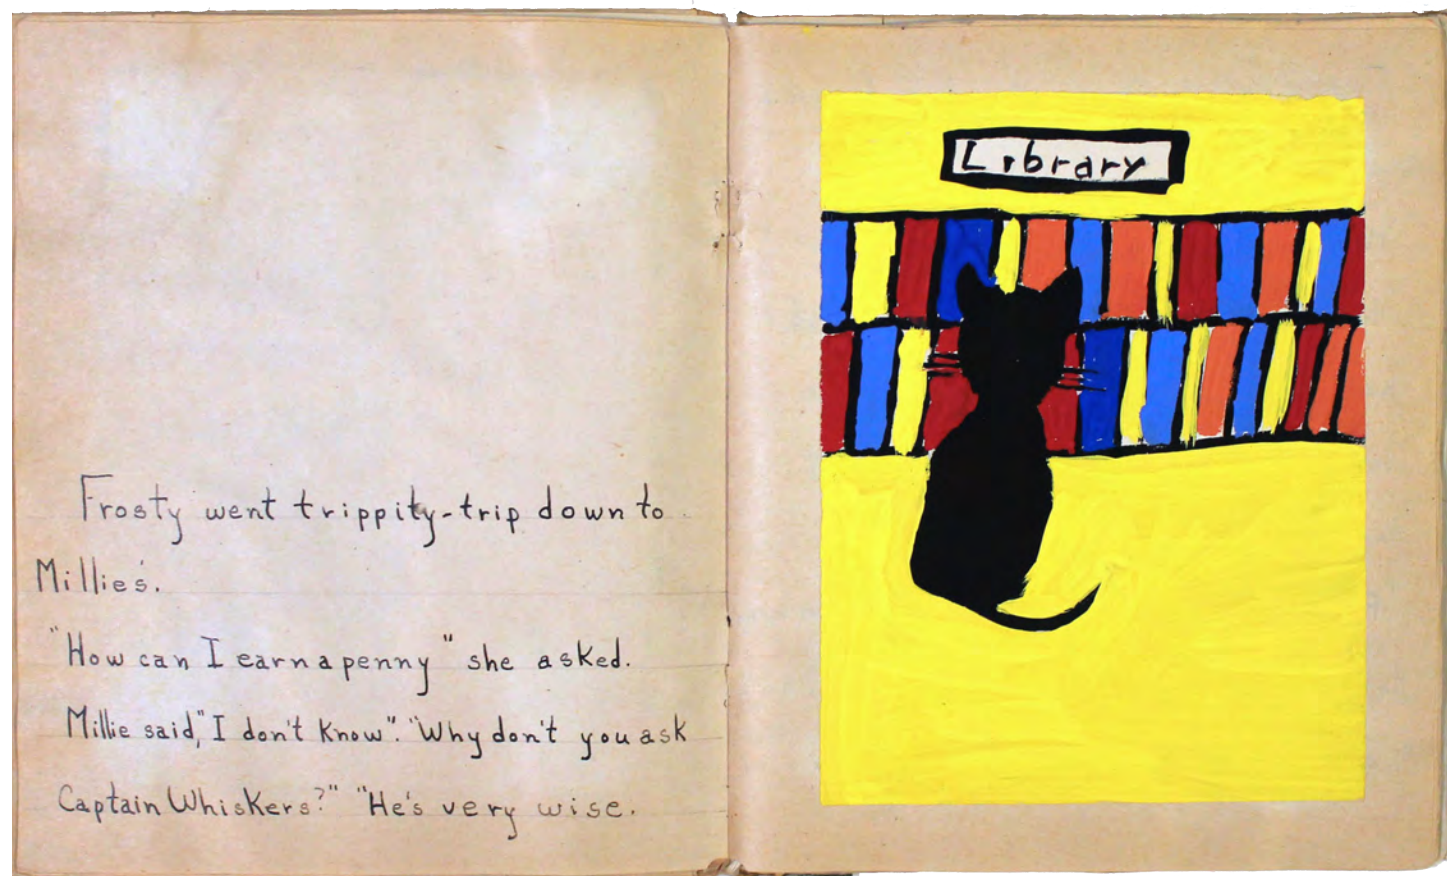 Frosty went trippity-trip down to
Millie's.
"How can I earn a penny" she asked.
Millie said, "I don't know". "Why don't you ask
Captain Whiskers?" "He's very wise.
Library